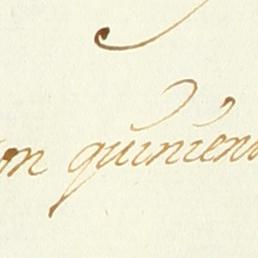 on quinien